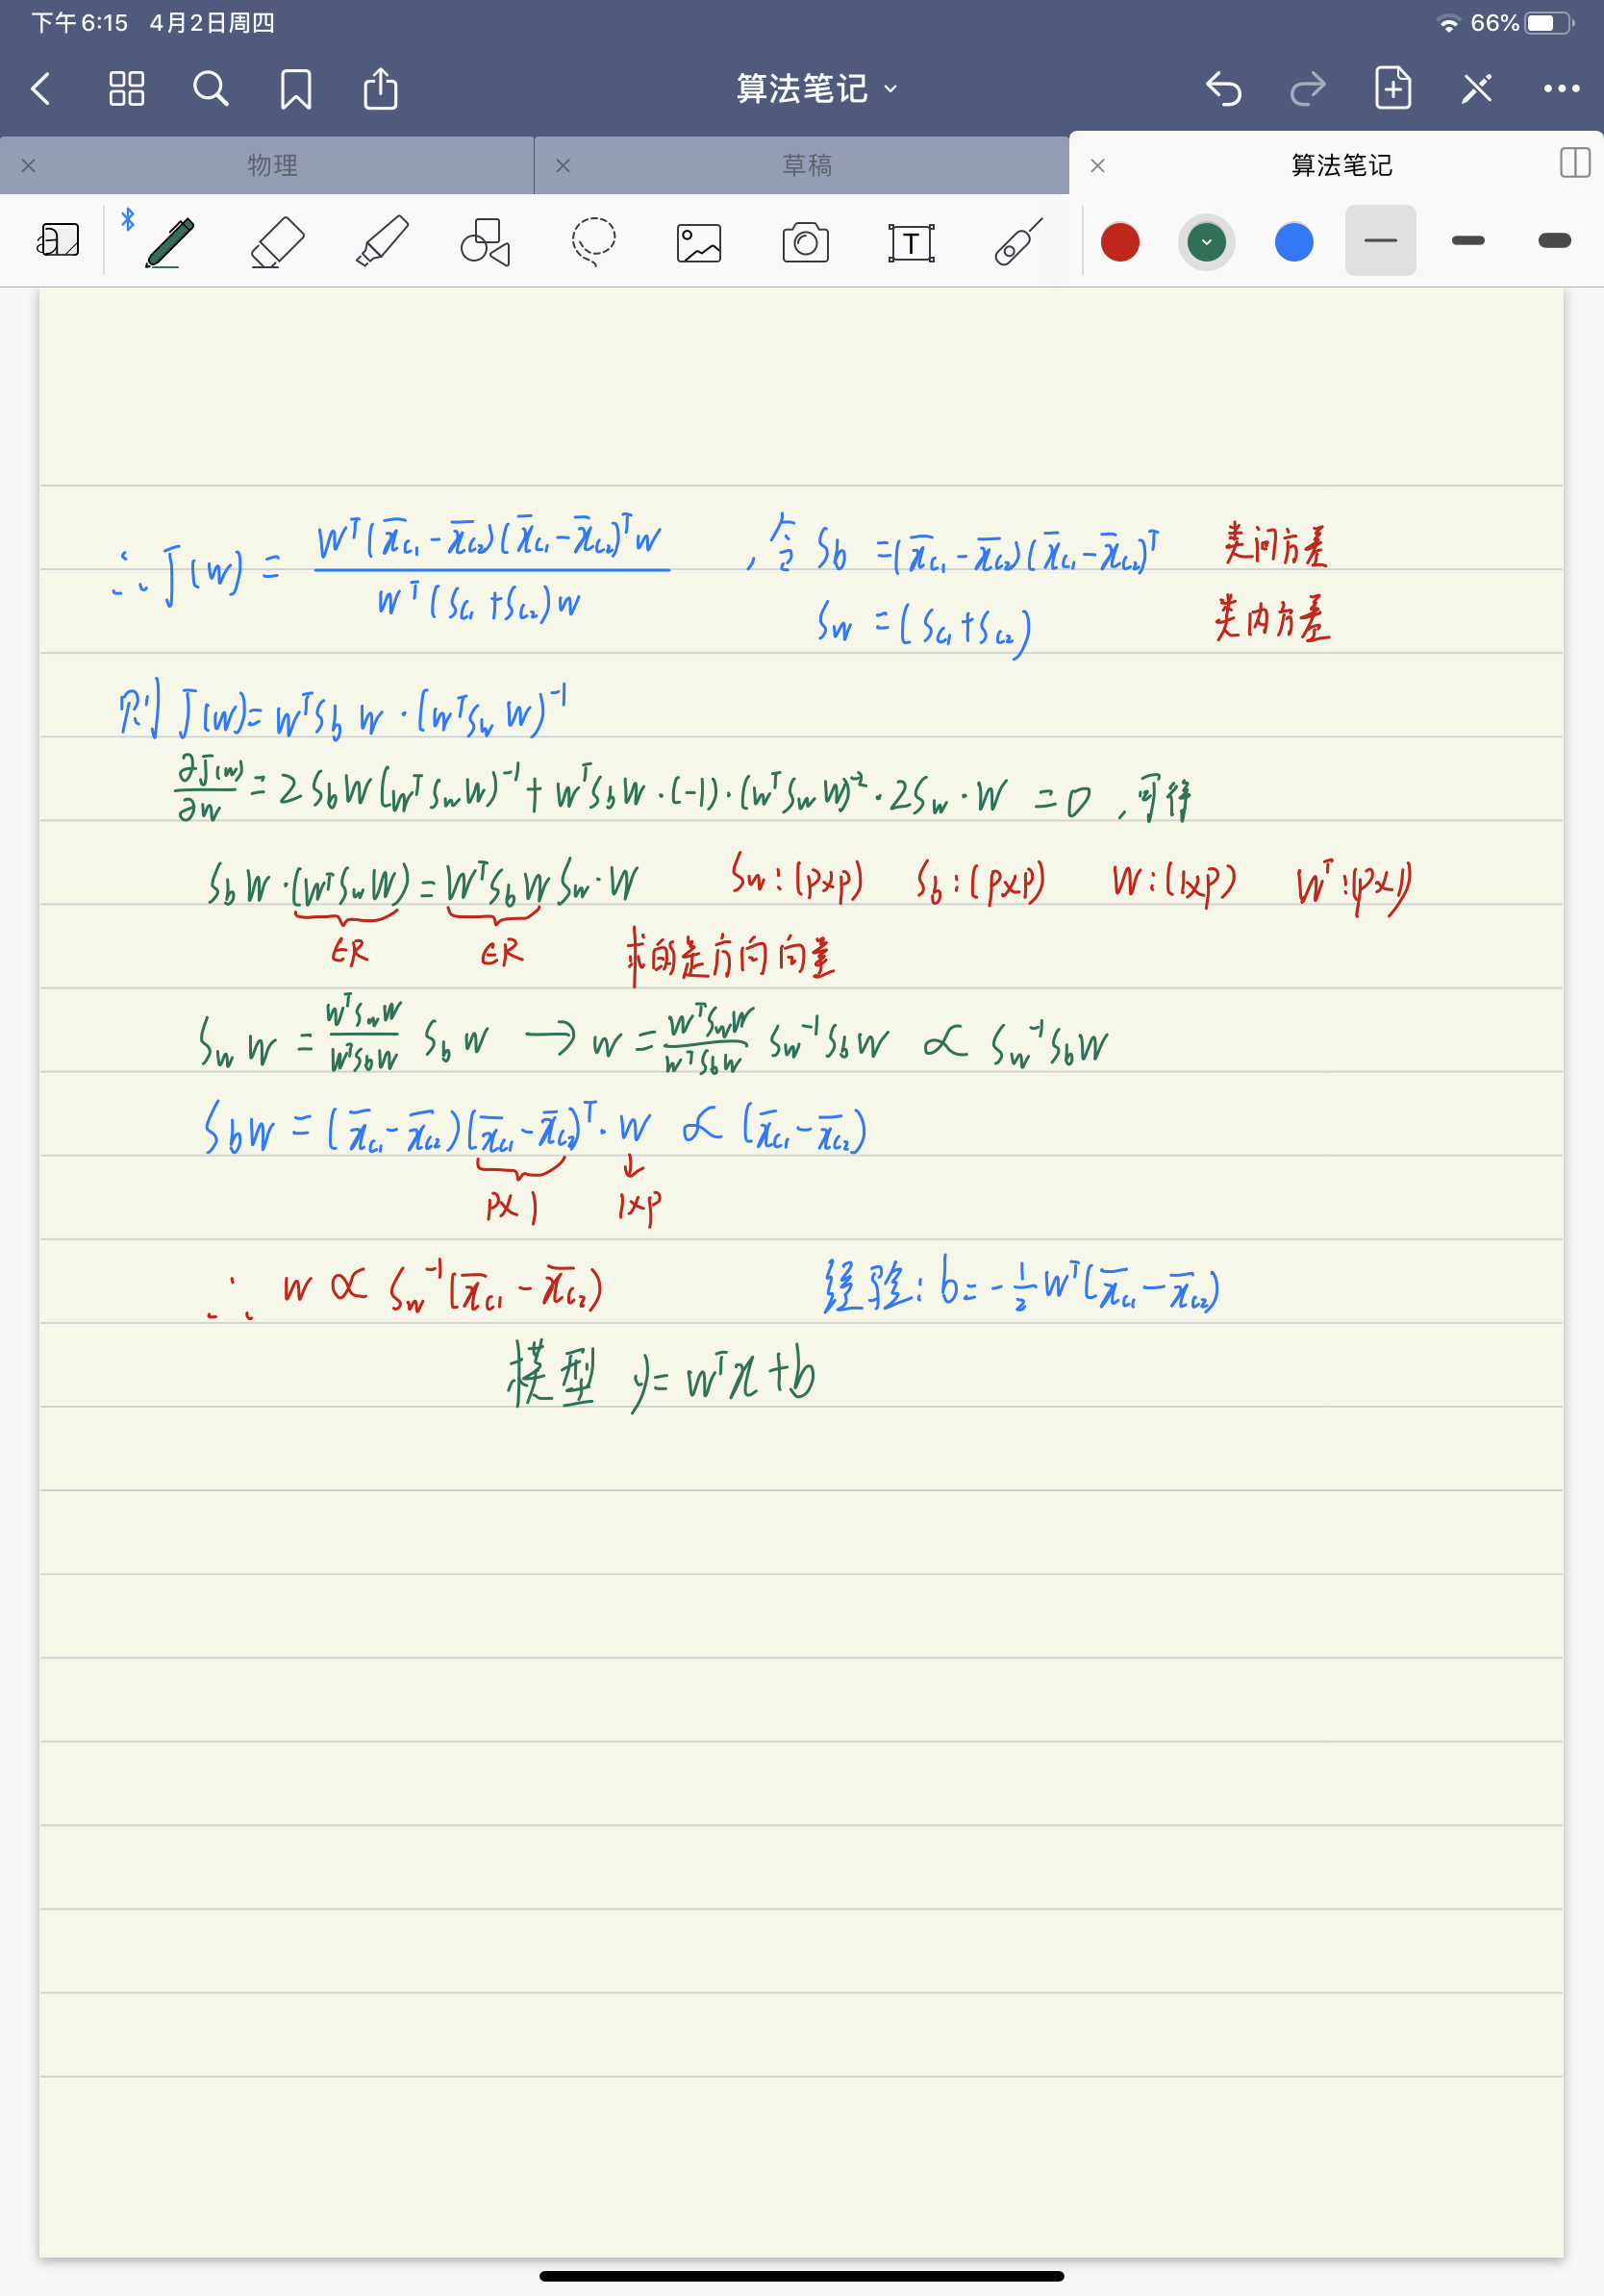 下午6:15 4月2日周四
66%
算法笔记
物理
草稿
算法笔记
T
∴ J(w) = w^T(x̄_{c₁} - x̄_{c₂})(x̄_{c₁} - x̄_{c₂})^T w / w^T(S_{c₁} + S_{c₂})w , 令 S_b = (x̄_{c₁} - x̄_{c₂})(x̄_{c₁} - x̄_{c₂})^T 类间方差
S_w = (S_{c₁} + S_{c₂}) 类内方差
则 J(w) = w^T S_b w · (w^T S_w w)^{-1}
∂J(w)/∂w = 2 S_b w (w^T S_w w)^{-1} + w^T S_b w · (-1) · (w^T S_w w)^{-2} · 2 S_w · w = 0 , 可得
S_b w · (w^T S_w w) = w^T S_b w S_w · w S_w : (p×p) S_b : (p×p) w : (1×p) w^T : (p×1)
∈R ∈R 求的是方向向量
S_w w = w^T S_w w / w^T S_b w S_b w → w = w^T S_w w / w^T S_b w S_w^{-1} S_b w ∝ S_w^{-1} S_b w
S_b w = (x̄_{c₁} - x̄_{c₂})(x̄_{c₁} - x̄_{c₂})^T · w ∝ (x̄_{c₁} - x̄_{c₂})
p×1 ↓ 1×p
∴ w ∝ S_w^{-1}(x̄_{c₁} - x̄_{c₂}) 经验: b = -1/2 w^T(x̄_{c₁} - x̄_{c₂})
模型 y = w^T x + b